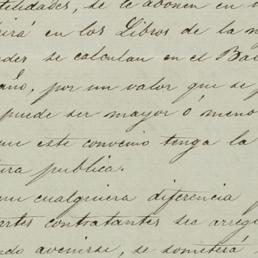 utilidades, se le abonen en
irá en los Libros de la
des se calculan en el Ba
año, por un valor que se p
puede ser mayor ó meno
que este convenio tenga la
tura publica.
en cualquiera diferencia
partes contratantes sea arreg
ndo avenirse, se someterá